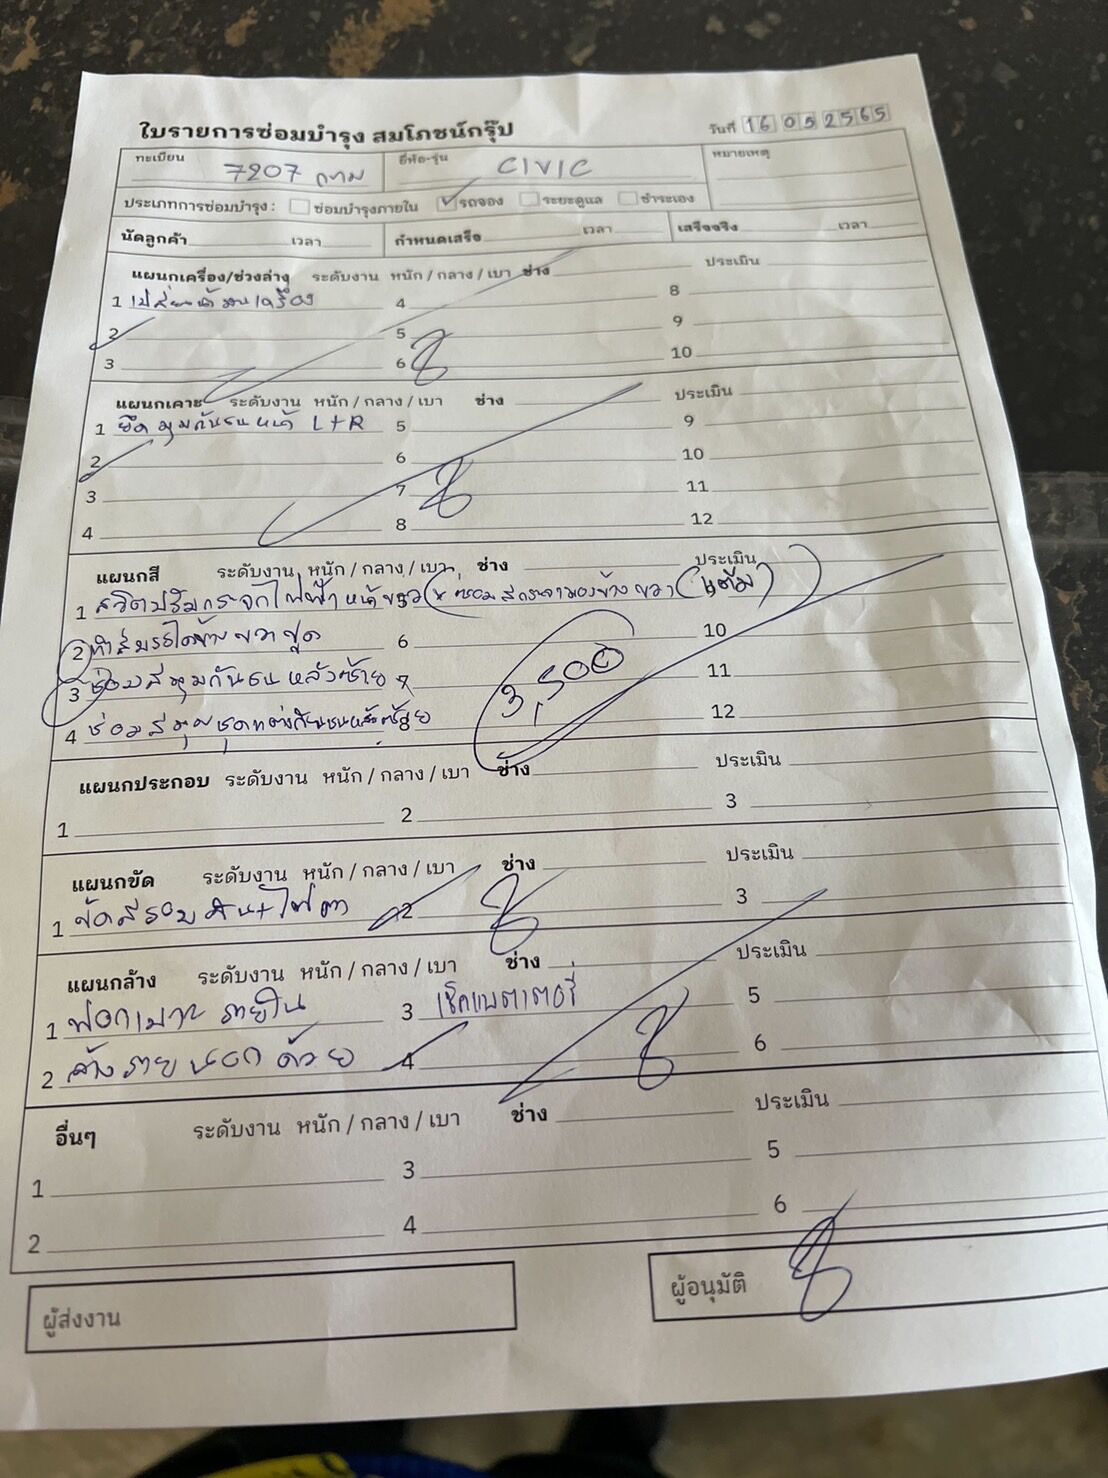 ใบรายการซ่อมบำรุง สมโภชน์กรุ๊ป
วันที่ 16 05 2565
ทะเบียน 7207 กทม ยี่ห้อ-รุ่น CIVIC หมายเหตุ
ประเภทการซ่อมบำรุง : ซ่อมบำรุงภายใน ✓ รถจอง ระยะดูแล ชำระเอง
นัดลูกค้า เวลา กำหนดเสร็จ เวลา เสร็จจริง เวลา
แผนกเครื่อง/ช่วงล่าง ระดับงาน หนัก / กลาง / เบา ช่าง ประเมิน
1 เปลี่ยนถ่ายน้ำมันเครื่อง 4 8
2 5 9
3 6 10
แผนกเคาะ ระดับงาน หนัก / กลาง / เบา ช่าง ประเมิน
1 ยึดมุมกันชนหน้า L+R 5 9
2 6 10
3 7 11
4 8 12
แผนกสี ระดับงาน หนัก / กลาง / เบา ช่าง ประเมิน
1 กระจกไฟฟ้าหน้าขวา ซ่อมสีกระจกมองข้างขวา (แต้ม)
2 ข้างขวา 6 10
3 ซ่อมสีมุมกันชนหลังซ้าย 7 3,500 11
4 ซ่อมสีมุมชุดแต่งกันชนหลังซ้าย 12
แผนกประกอบ ระดับงาน หนัก / กลาง / เบา ช่าง ประเมิน
1 2 3
แผนกขัด ระดับงาน หนัก / กลาง / เบา ช่าง ประเมิน
1 ขัดสีรอบคัน+ไฟตา 2 3
แผนกล้าง ระดับงาน หนัก / กลาง / เบา ช่าง ประเมิน
1 ฟอกเบาะภายใน 3 เช็คแบตเตอรี่ 5
2 ล้างภายนอกด้วย 4 6
อื่นๆ ระดับงาน หนัก / กลาง / เบา ช่าง ประเมิน
1 3 5
2 4 6
ผู้ส่งงาน ผู้อนุมัติ